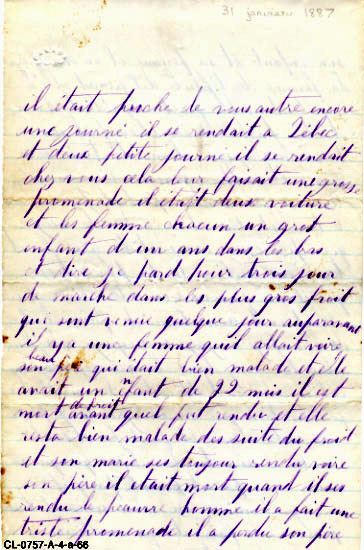 31 janvier 1887
il était proche de vous autre encore
une journé il se rendait a Québec
et deux petite journé il se rendait
chez vous cela leur faisait une gross
promenade il etait deux voiture
et les femme chacun un gros
enfant d un ans dans les bas
et dire je pard pour trois jour
de marche dans les plus gros froit
qui sont venue quelque jour auparavant
il y a une femme quil allait voire
son beau père qui était bien malade et elle
avait un enfant de 22 mois il est
mort de froit avant quel fut rendu et elle
resta bien malade des suite du froid
et son marie ses toujour rendu voire
son père il etait mort quand il ses
rendu le peauvre homme il a fait une
triste promenade il a perdu son père
CL-0757-A-4-a-66